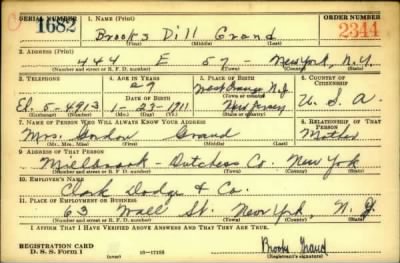 SERIAL NUMBER 1. NAME (Print) ORDER NUMBER
1682 Brooks Dill Grand 2344
(First) (Middle) (Last)
2. ADDRESS (Print)
444 E 57 - New York, N.Y.
(Number and street or R. F. D. number) (Town) (County) (State)
3. TELEPHONE 4. AGE IN YEARS 5. PLACE OF BIRTH 6. COUNTRY OF CITIZENSHIP
29 West Orange N.J.
DATE OF BIRTH (Town or county)
El. 5-4913 1-23-1911 New Jersey U.S.A.
(Exchange) (Number) (Mo.) (Day) (Yr.) (State or country)
7. NAME OF PERSON WHO WILL ALWAYS KNOW YOUR ADDRESS 8. RELATIONSHIP OF THAT PERSON
Mrs. Gordon Grand Mother
(Mr., Mrs., Miss) (First) (Middle) (Last)
9. ADDRESS OF THAT PERSON
Millbrook - Dutchess Co. New York
(Number and street or R. F. D. number) (Town) (County) (State)
10. EMPLOYER'S NAME
Clark Dodge & Co.
11. PLACE OF EMPLOYMENT OR BUSINESS
63 Wall St. New York, N.Y.
(Number and street or R. F. D. number) (Town) (County) (State)
I AFFIRM THAT I HAVE VERIFIED ABOVE ANSWERS AND THAT THEY ARE TRUE.
REGISTRATION CARD Brooks Grand
D. S. S. Form 1 (over) 16-17105 (Registrant's signature)